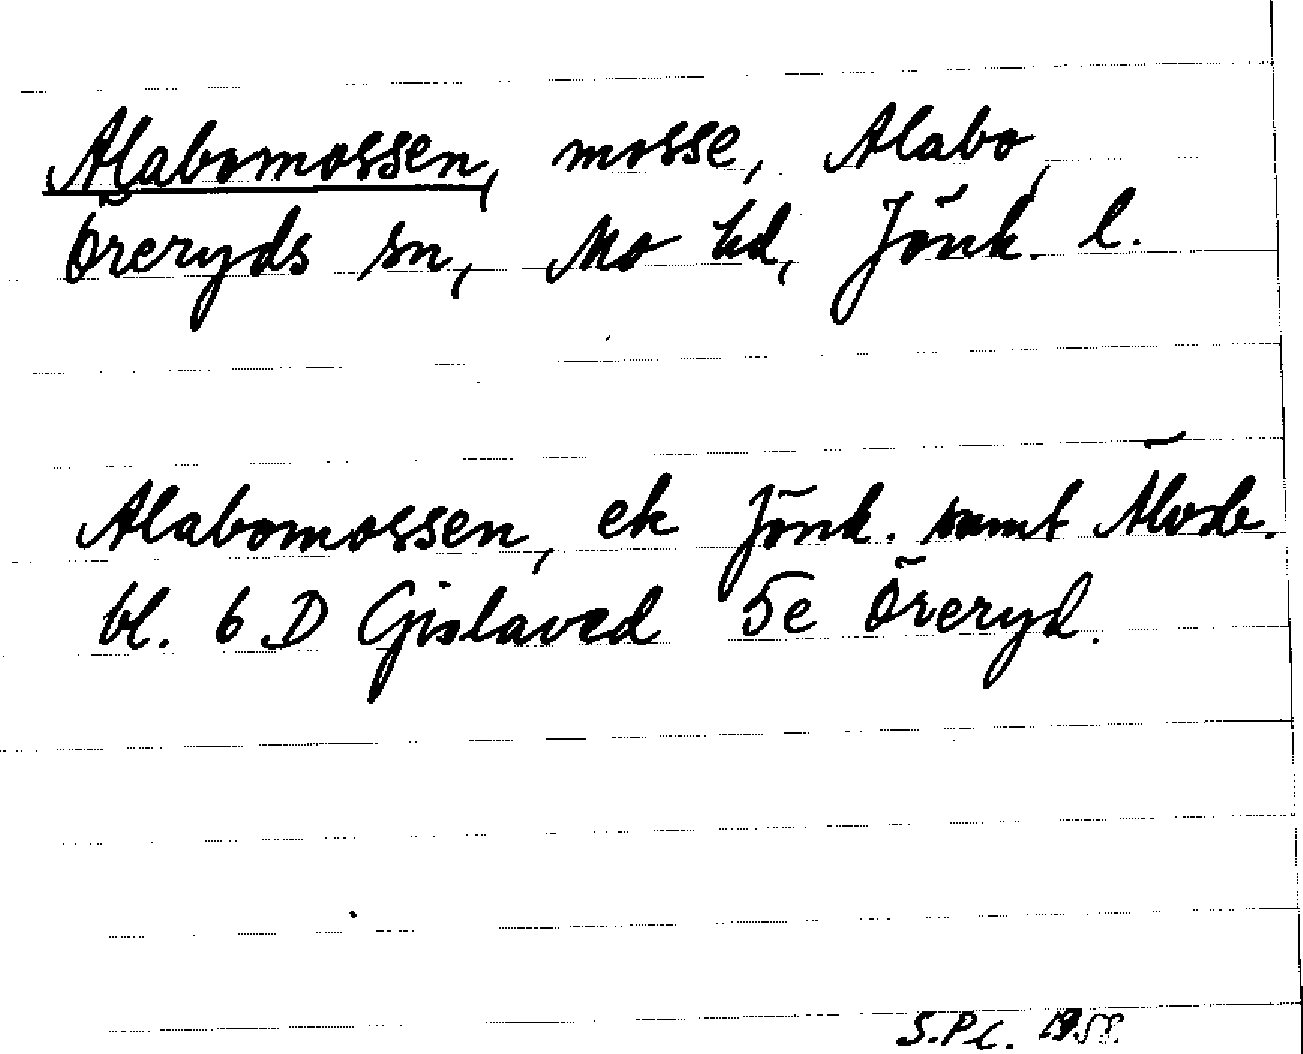 Alabomossen, mosse, Alabo,
Öreryds sn, Mo hd, Jönk. l.
Alabomossen, ek Jönk. samt
bl. 6 D Gislaved 5e Öreryd.
S.P.C.